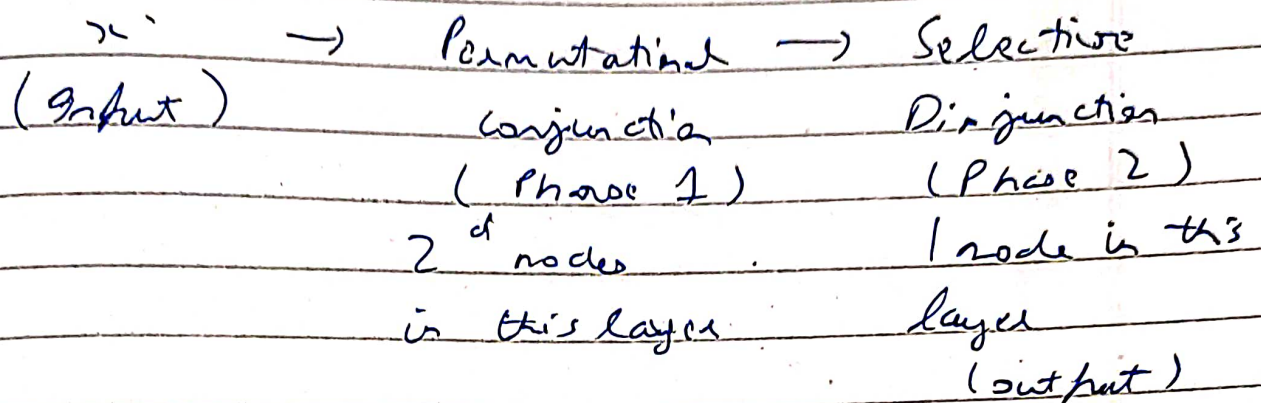 x → Permutational → Selective
(Input) Conjunction Disjunction
( Phase 1 ) ( Phase 2 )
2^d nodes 1 node in this
in this layer layer
(output)